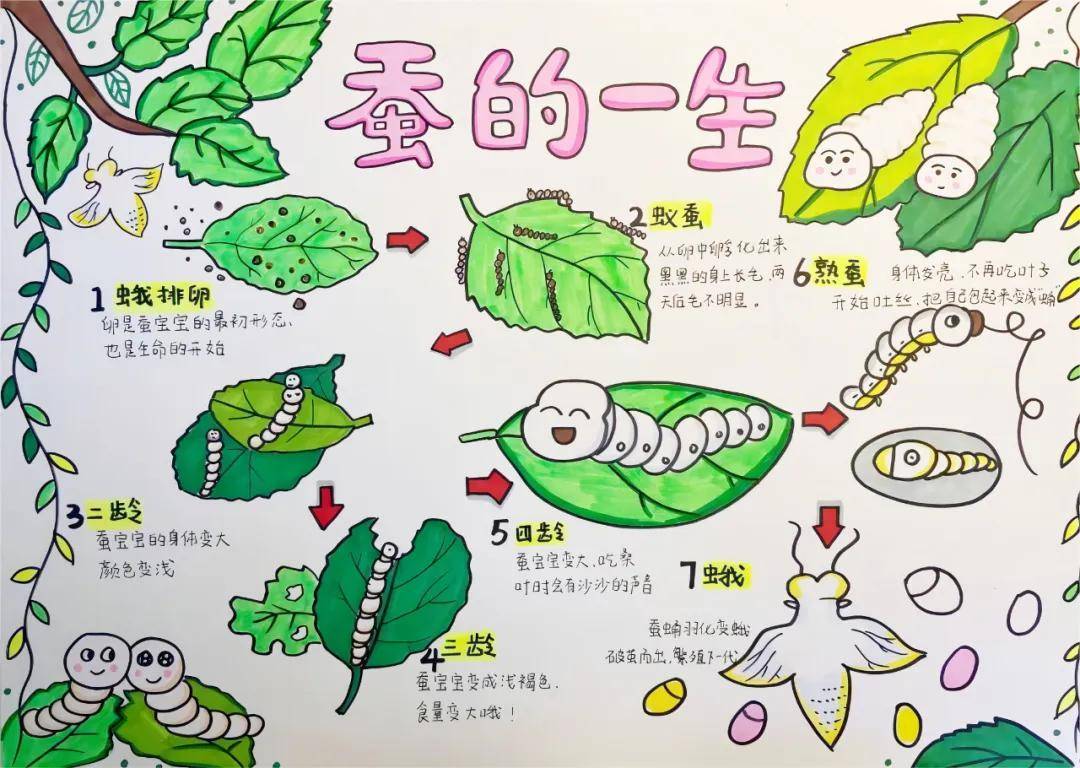 蚕的一生
1 蛾排卵
卵是蚕宝宝的最初形态、
也是生命的开始
2 蚁蚕
从卵中孵化出来
黑黑的身上长毛,两
天后毛不明显。
3 二龄
蚕宝宝的身体变大
颜色变浅
4 三龄
蚕宝宝变成浅褐色.
食量变大哦！
5 四龄
蚕宝宝变大、吃桑
叶时会有沙沙的声音
6 熟蚕
身体发亮.不再吃叶子
开始吐丝、把自己包起来变成"蛹"
7 蛾
蚕蛹羽化变蛾
破茧而出,繁殖下一代